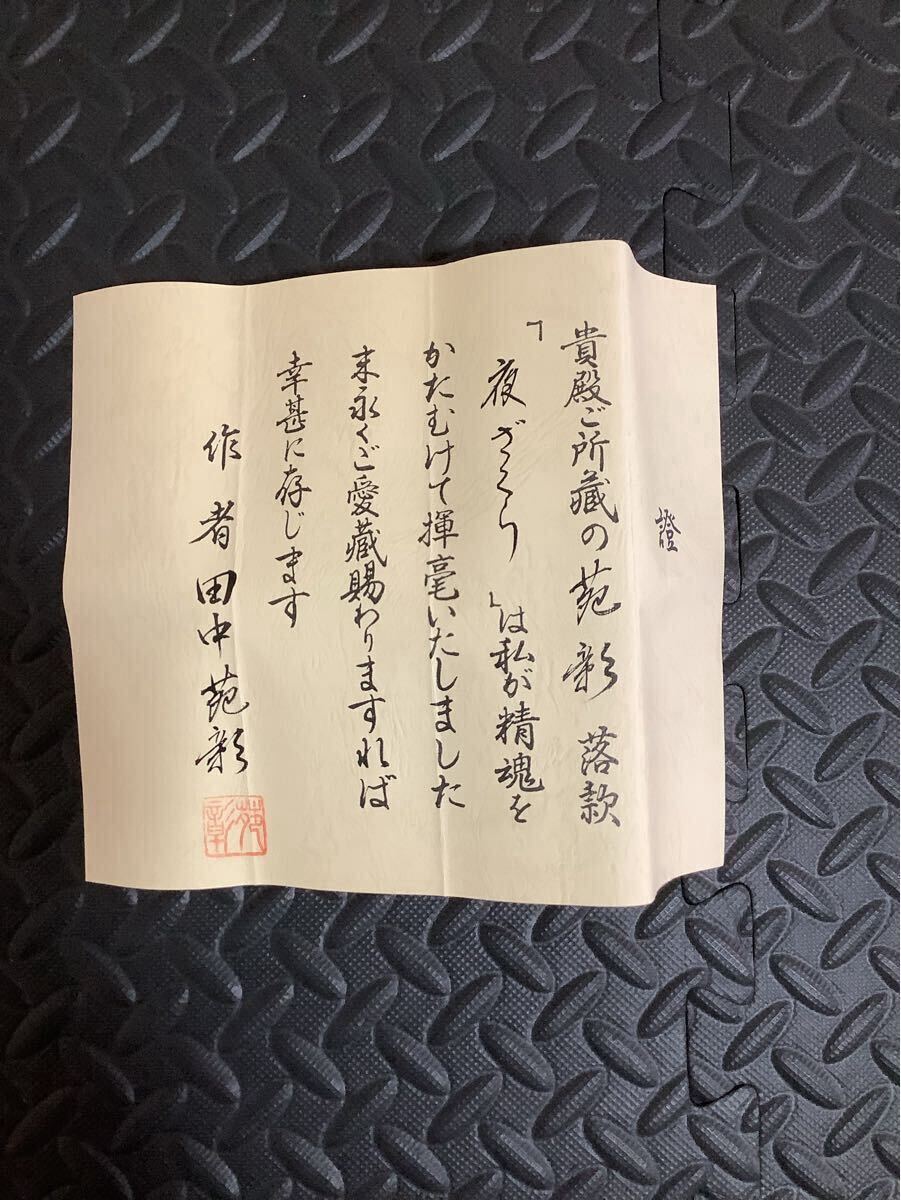 證
貴殿ご所藏の苑彩落款
「夜ざくら」は私が精魂を
かたむけて揮毫いたしました
末永くご愛藏賜わりますれば
幸甚に存じます
作者田中苑彩